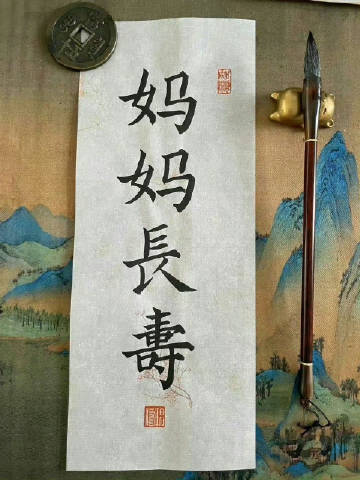 妈妈長壽